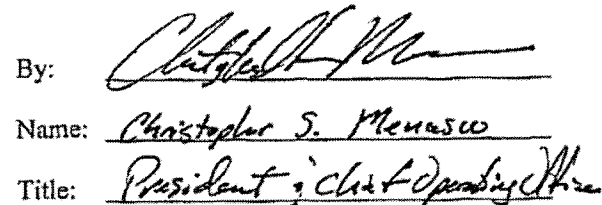 By:
Name: Christopher S. Menasco
Title: President & Chief Operating Officer